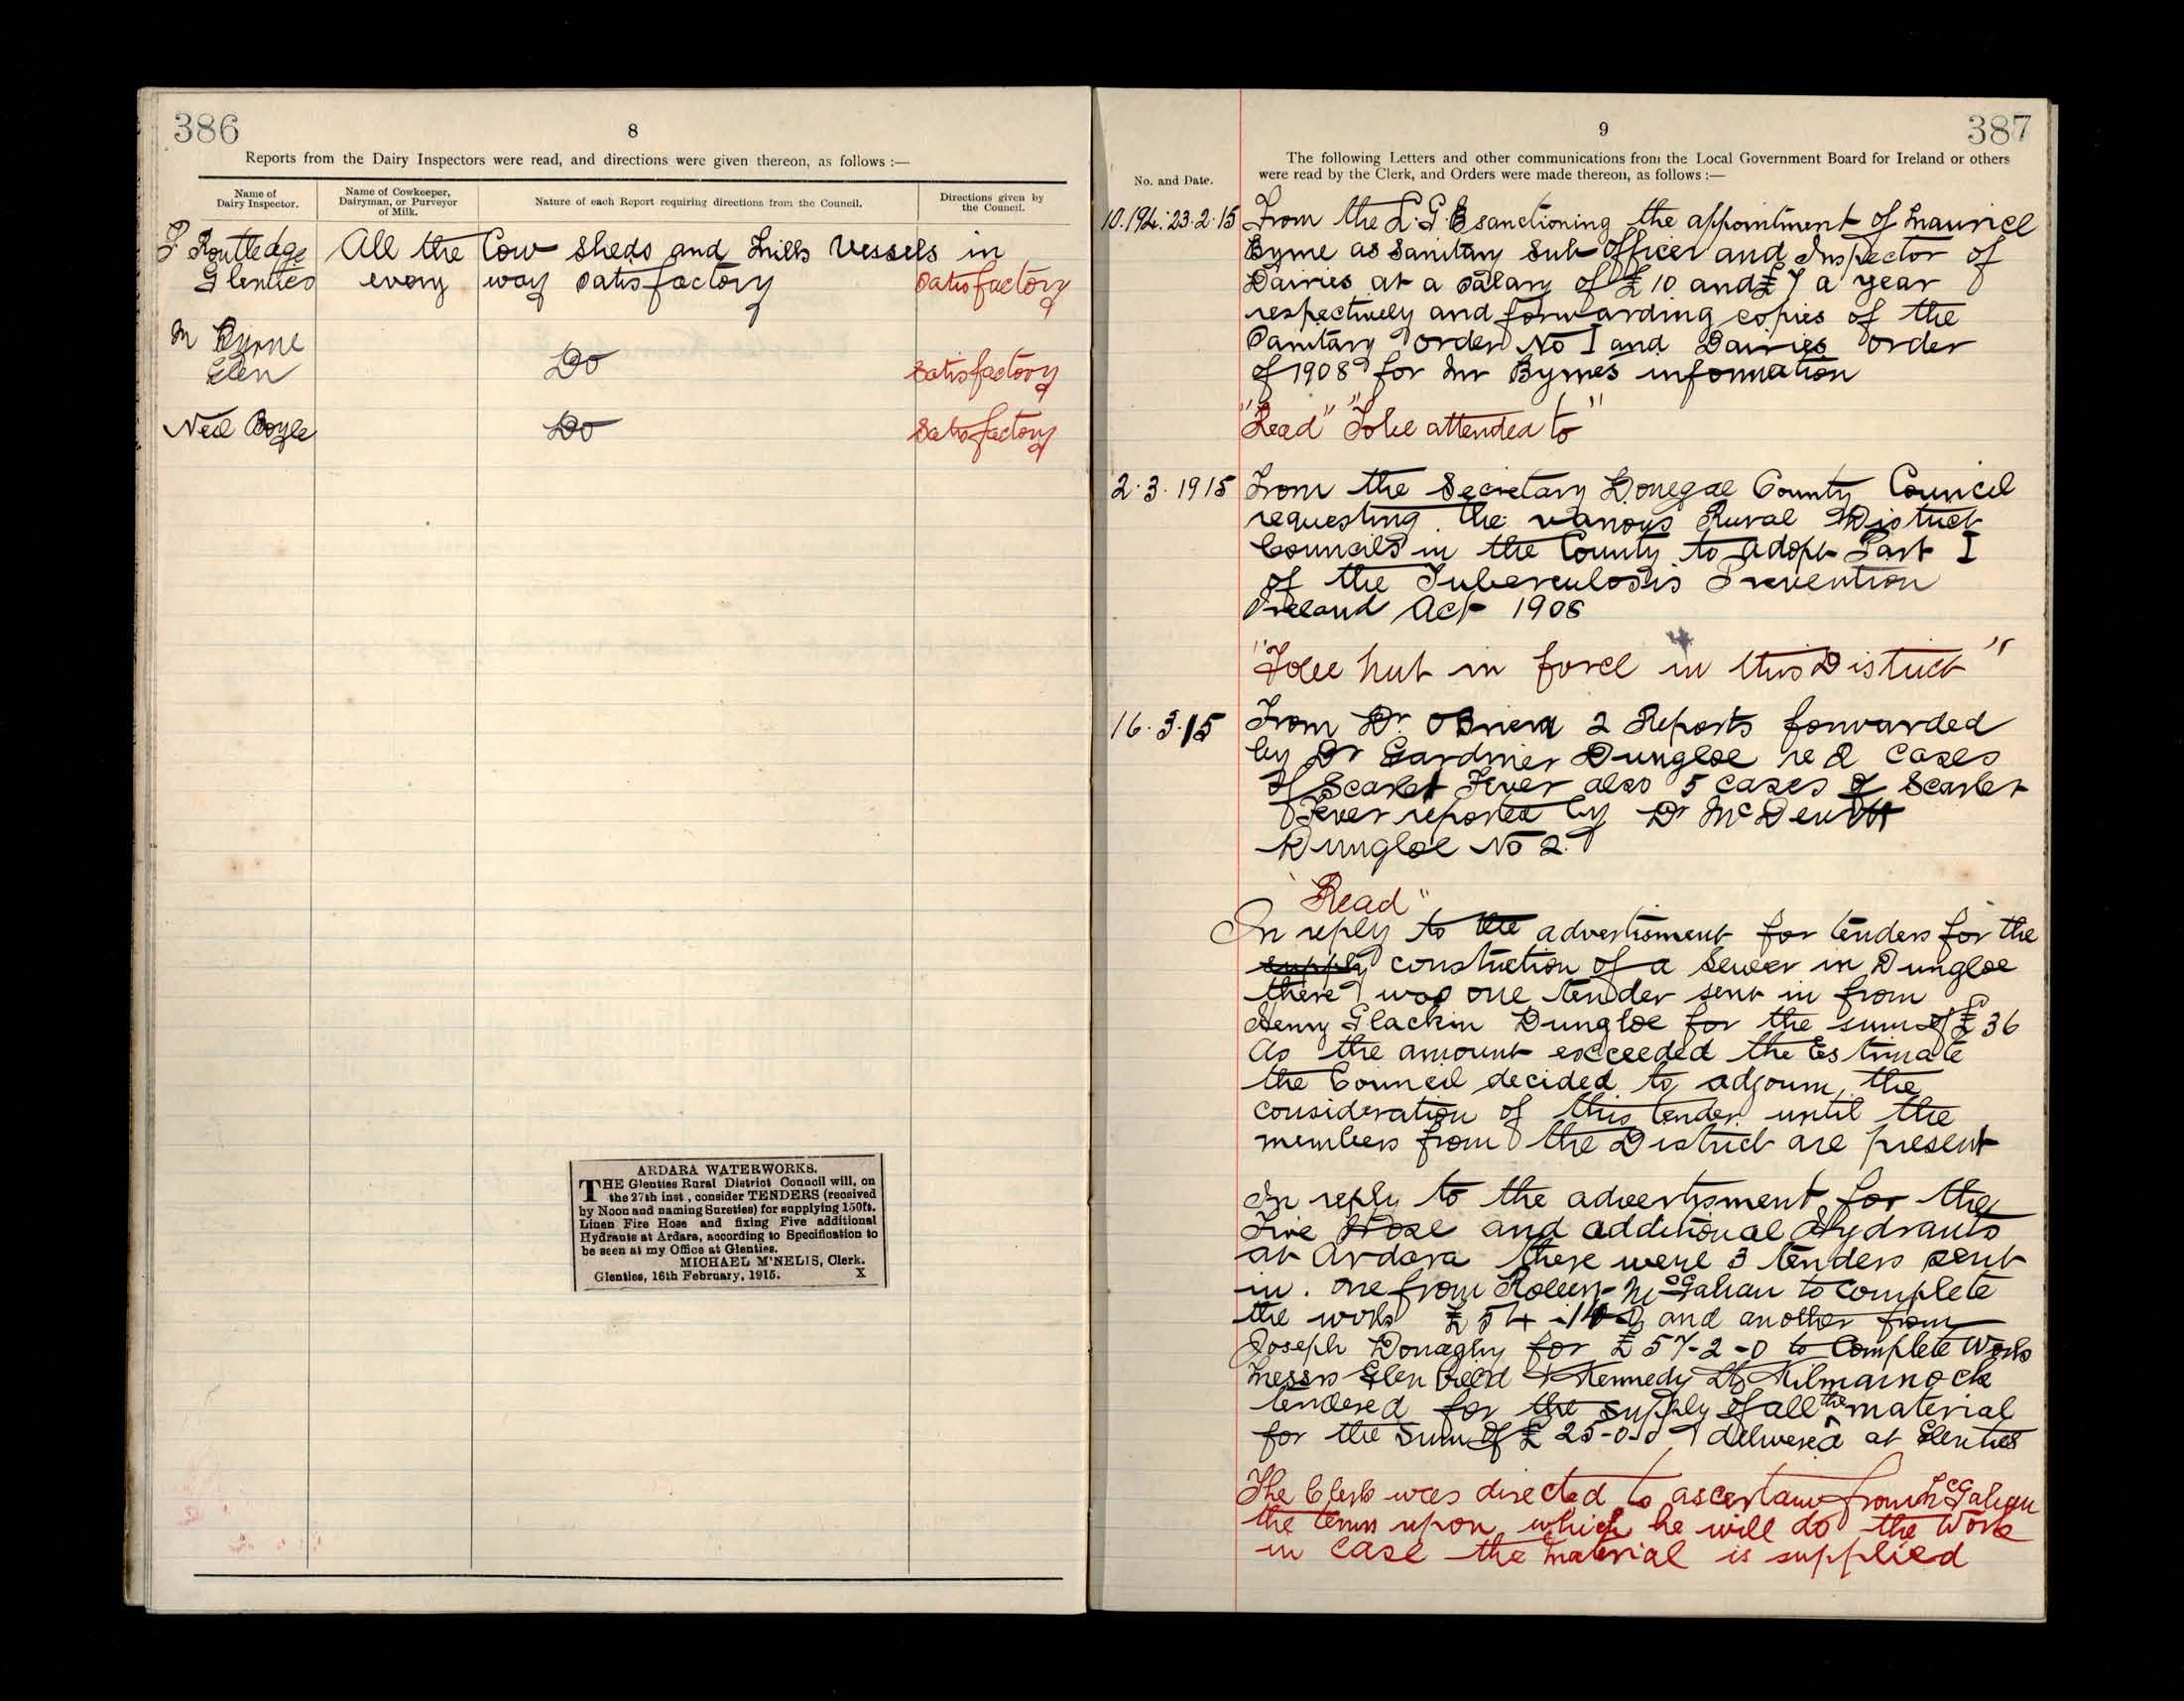 386
8
Reports from the Dairy Inspectors were read, and directions were given thereon, as follows :—
Name of Dairy Inspector.
Name of Cowkeeper, Dairyman, or Purveyor of Milk.
Nature of each Report requiring directions from the Council.
Directions given by the Council.
F. Routledge All the Cow Sheds and Milk Vessels in
Glenties every way satisfactory satisfactory
M Byrne
Glen Do satisfactory
Neil Boyle Do satisfactory
ARDARA WATERWORKS.
THE Glenties Rural District Council will, on
the 27th inst, consider TENDERS (received
by Noon and naming Sureties) for supplying 150ft.
Linen Fire Hose and fixing Five additional
Hydrants at Ardara, according to Specification to
be seen at my Office at Glenties.
MICHAEL M'NELIS, Clerk.
Glenties, 16th February, 1915. X
9
387
The following Letters and other communications from the Local Government Board for Ireland or others
were read by the Clerk, and Orders were made thereon, as follows :—
No. and Date.
10.194. 23.2.15 From the L.G.B sanctioning the appointment of Maurice
Byrne as Sanitary Sub Officer and Inspector of
Dairies at a salary of £10 and £7 a year
respectively and forwarding copies of the
Sanitary Order No I and Dairies Order
of 1908 for Mr Byrnes information
"Read" "To be attended to"
2.3.1915 From the Secretary Donegal County Council
requesting the various Rural District
Councils in the County to adopt Part I
of the Tuberculosis Prevention
Ireland Act 1908
"To be put in force in this District"
16.3.15 From Dr OBrien 2 Reports forwarded
by Dr Gardiner Dungloe re 2 cases
of Scarlet Fever also 5 cases of Scarlet
Fever reported by Dr McDevitt
Dungloe No 2
"Read"
In reply to the advertisment for tenders for the
supply constuction of a Sewer in Dungloe
there was one tender sent in from
Henry Glackin Dungloe for the sum of £36
As the amount exceeded the Estimate
the Council decided to adjourn the
consideration of this tender until the
members from the District are present
In reply to the advertisment for the
Fire Hose and additional Hydrants
at Ardara there were 3 tenders sent
in. One from Robert McGahan to complete
the work £54 and another from
Joseph Donaghy for £57-2-0 to Complete Work
Messrs Glenfield & Kennedy Ltd Kilmarnock
tendered for the supply of all the material
for the sum of £25-0-0 delivered at Glenties
The Clerk was directed to ascertain from McGahan
the terms upon which he will do the work
in case the material is supplied